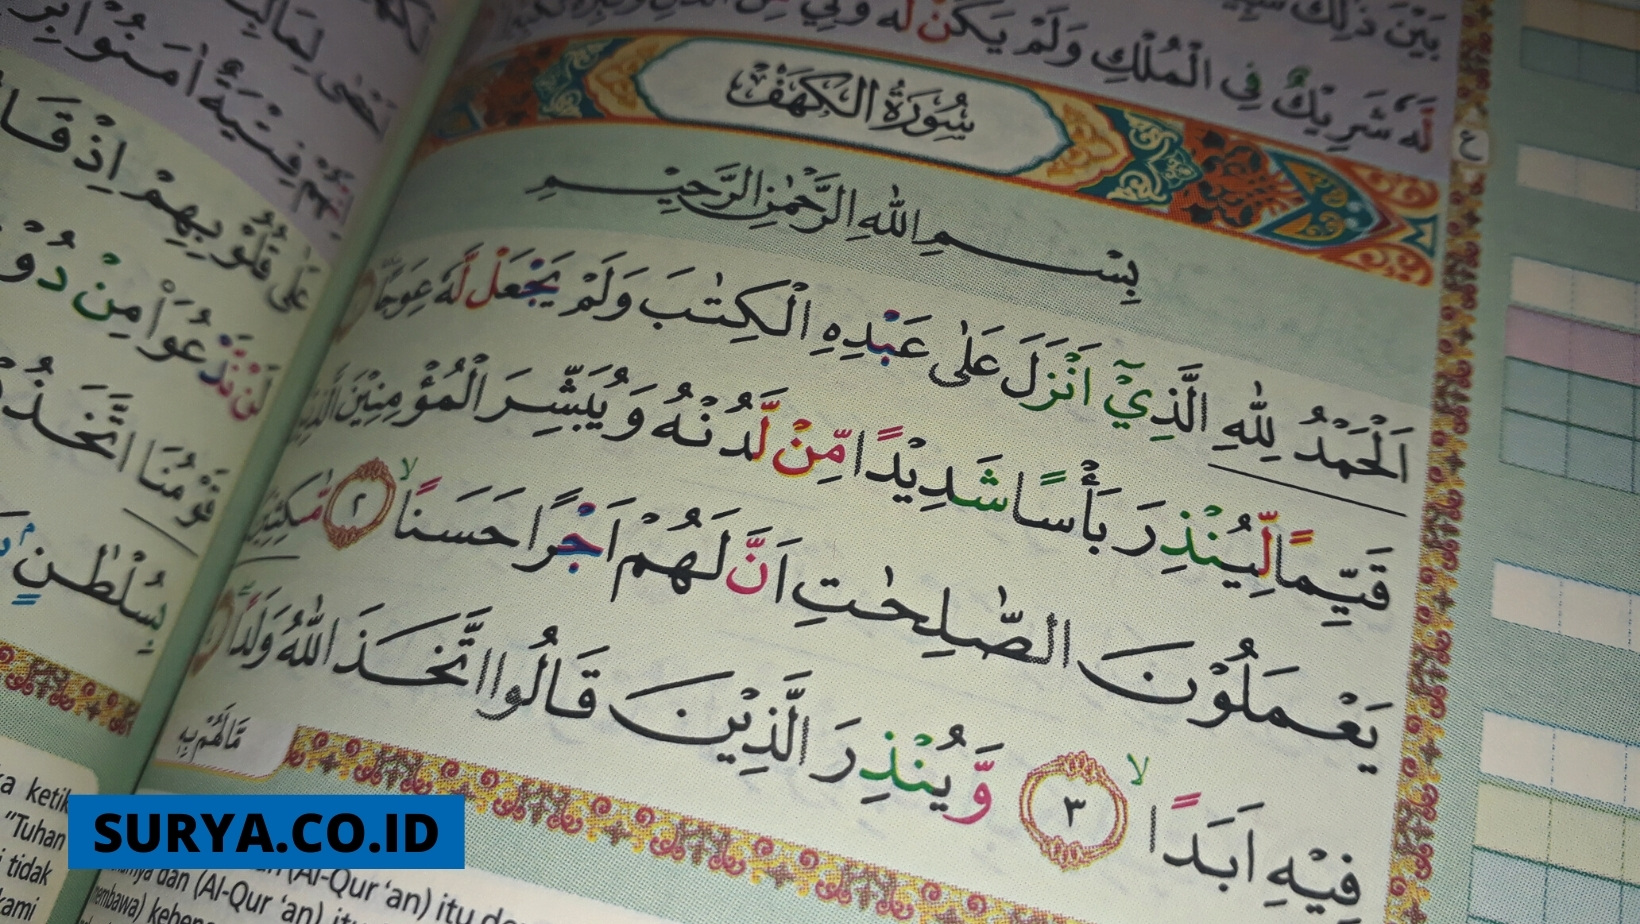 بَيْنَ ذٰلِكَ
لَّهٗ شَرِيْكٌ فِى الْمُلْكِ وَلَمْ يَكُنْ لَّهٗ وَلِيٌّ مِّنَ الذُّلِّ وَكَبِّرْهُ
سُوْرَةُ الْكَهَفْ
ع
بِسْمِ اللّٰهِ الرَّحْمٰنِ الرَّحِيْمِ
اَلْحَمْدُ لِلّٰهِ الَّذِيْٓ اَنْزَلَ عَلٰى عَبْدِهِ الْكِتٰبَ وَلَمْ يَجْعَلْ لَّهٗ عِوَجًا
قَيِّمًا لِّيُنْذِرَ بَأْسًا شَدِيْدًا مِّنْ لَّدُنْهُ وَيُبَشِّرَ الْمُؤْمِنِيْنَ الَّذِيْنَ
يَعْمَلُوْنَ الصّٰلِحٰتِ اَنَّ لَهُمْ اَجْرًا حَسَنًاۙ ٢ مّٰكِثِيْنَ
فِيْهِ اَبَدًاۙ ٣ وَّيُنْذِرَ الَّذِيْنَ قَالُوا اتَّخَذَ اللّٰهُ وَلَدًا
مَّا لَهُمْ بِهٖ
فِتْيَةٌ اٰمَنُوْا
عَلٰى قُلُوْبِهِمْ اِذْ قَا
لَنْ نَّدْعُوَا۟ مِنْ دُوْ
قَوْمُنَا اتَّخَذُ
بِسُلْطٰنٍ
a ketik
"Tuhan
tidak
kami
dan (Al-Qur 'an)
(Al-Qur 'an) itu
SURYA.CO.ID